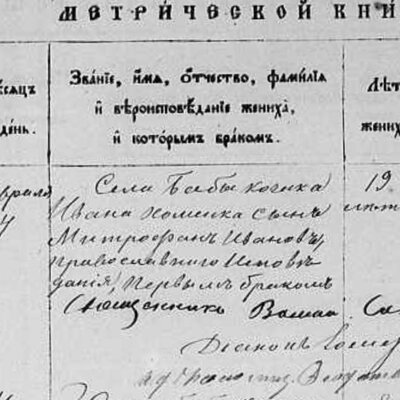 МЕТРИЧЕСКОЙ КНИ
сяцъ
день.
Званіе, имя, отчество, фамилія
и вѣроисповѣданіе жениха,
и которымъ бракомъ.
Лѣт
жених
Села Бабы козака
Ивана Хоменка сынъ
Митрофанъ Ивановъ,
православнаго исповѣ-
данія, первымъ бракомъ
19
лѣт
Священникъ
Діаконъ